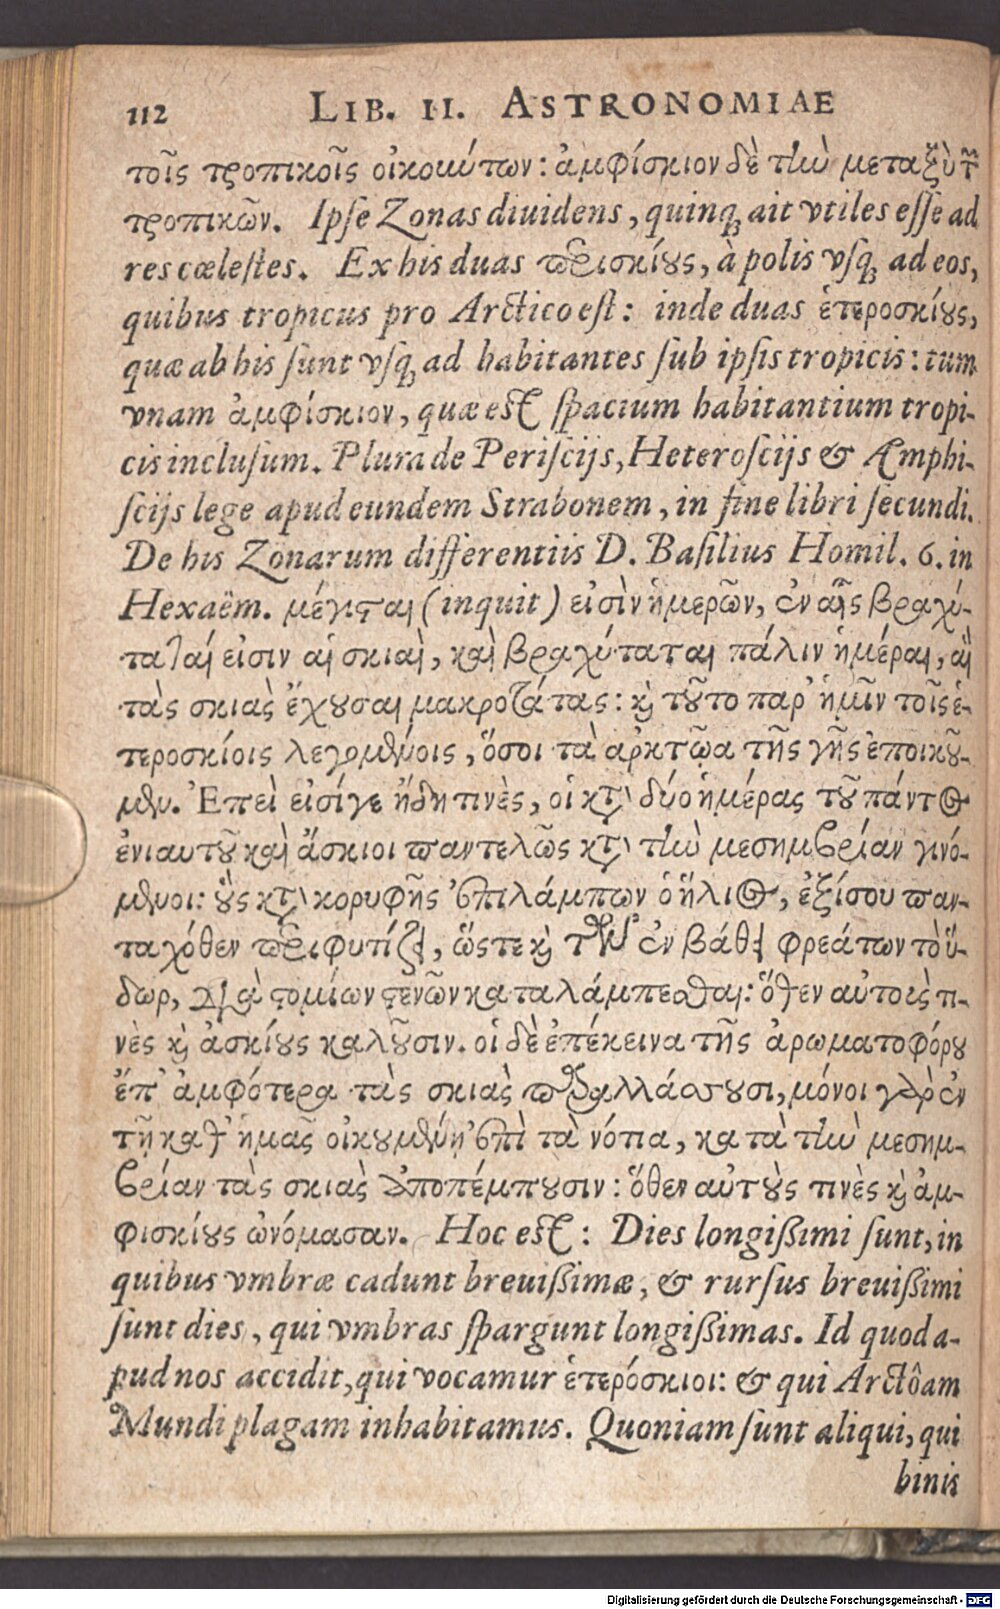 112 LIB. II. ASTRONOMIAE
τοῖς τροπικοῖς οἰκούντων: ἀμφίσκιον δὲ τὴν μεταξὺ τῶν
τροπικῶν. Ipse Zonas diuidens, quinq; ait vtiles esse ad
res cœlestes. Ex his duas περισκίους, à polis vsq; ad eos,
quibus tropicus pro Arctico est: inde duas ἑτεροσκίους,
quæ ab his sunt vsq; ad habitantes sub ipsis tropicis: tum
vnam ἀμφίσκιον, quæ est spacium habitantium tropi-
cis inclusum. Plura de Periscijs, Heteroscijs & Æmphi-
scijs lege apud eundem Strabonem, in fine libri secundi.
De his Zonarum differentiis D. Basilius Homil. 6. in
Hexaëm. μέγισται (inquit) εἰσὶν ἡμερῶν, ἐν αἷς βραχύ-
ταταί εἰσιν αἱ σκιαὶ, καὶ βραχύταται πάλιν ἡμέραι, αἳ
τὰς σκιὰς ἔχουσαι μακροτάτας: καὶ τοῦτο παρ' ἡμῖν τοῖς ἑ-
τεροσκίοις λεγομένοις, ὅσοι τὰ ἀρκτῷα τῆς γῆς ἐποικοῦ-
μεν. Ἐπεὶ εἰσίγε ἤδη τινὲς, οἱ κατὰ δύο ἡμέρας τοῦ πάντος
ἐνιαυτοῦ καὶ ἄσκιοι παντελῶς κατὰ τὴν μεσημβρίαν γινό-
μενοι: οὓς κατὰ κορυφῆς ἐπιλάμπων ὁ ἥλιος, ἐξίσου παν-
ταχόθεν περιφωτίζει, ὥστε καὶ τῶν ἐν βάθει φρεάτων τὸ ὕ-
δωρ, διὰ στομίων στενῶν καταλάμπεσθαι: ὅθεν αὐτοὺς τι-
νὲς καὶ ἀσκίους καλοῦσιν. οἱ δὲ ἐπέκεινα τῆς ἀρωματοφόρου
ἐπ' ἀμφότερα τὰς σκιὰς παραλλάσσουσι, μόνοι γὰρ ἐν
τῇ καθ' ἡμᾶς οἰκουμένῃ ἐπὶ τὰ νότια, κατὰ τὴν μεσημ-
βρίαν τὰς σκιὰς ἀποπέμπουσιν: ὅθεν αὐτούς τινὲς καὶ ἀμ-
φισκίους ὠνόμασαν. Hoc est: Dies longißimi sunt, in
quibus vmbræ cadunt breuißimæ, & rursus breuißimi
sunt dies, qui vmbras spargunt longißimas. Id quod a-
pud nos accidit, qui vocamur ἑτερόσκιοι: & qui Arctôam
Mundi plagam inhabitamus. Quoniam sunt aliqui, qui
binis
Digitalisierung gefördert durch die Deutsche Forschungsgemeinschaft - DFG